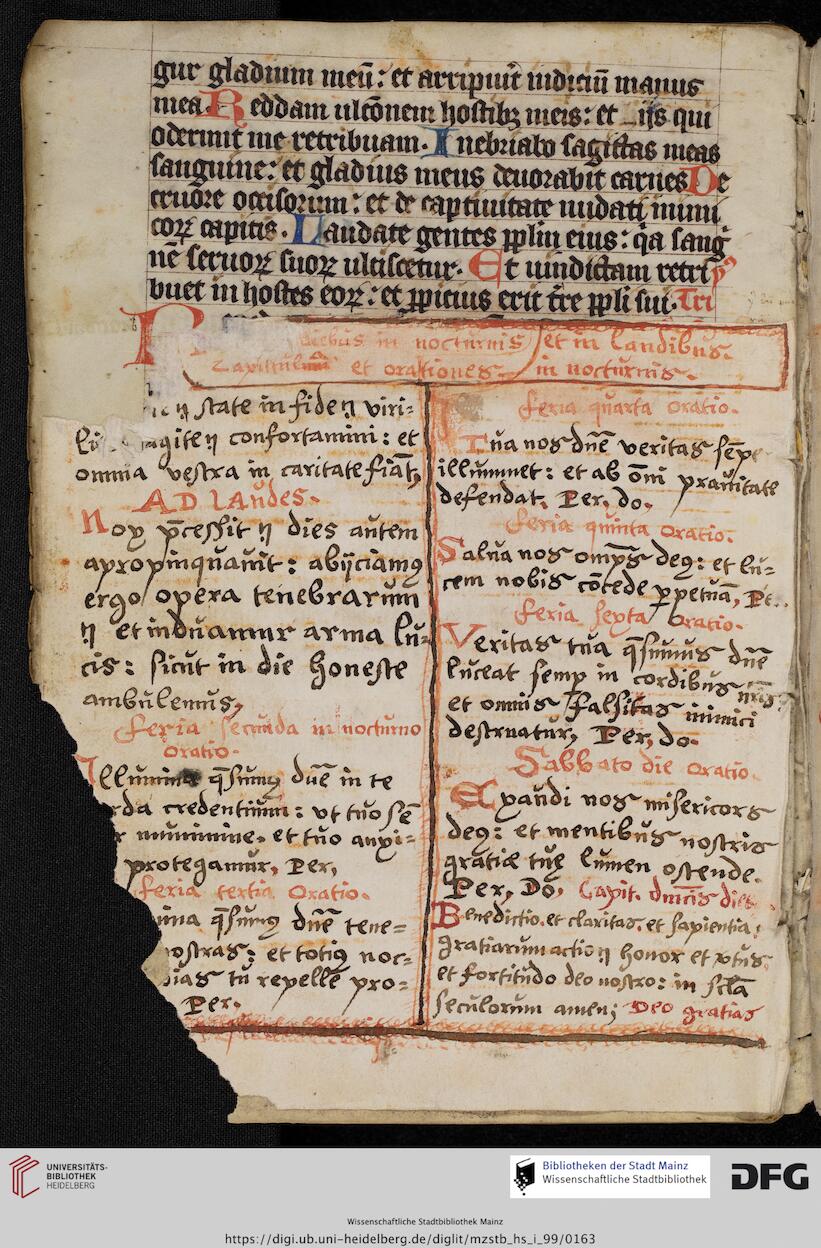 gur gladium meū: et arripuit iudiciū manus
mea. Reddam ulcōnem hostibꝫ meis: et iis qui
oderunt me retribuam. Inebriabo sagittas meas
sanguine: et gladius meus deuorabit carnes De
cruore occisorum: et de captiuitate nudati inimi
coꝝ capitis. Laudate gentes pplm eius: qa sang
nē seruoꝝ suoꝝ ulciscetur. Et uindictam retri
buet in hostes eoꝝ: et ꝓpicius erit tr̄e ppli sui. Tri
diebus in nocturnis et in laudibus.
Capitulum et orationes in nocturnis.
state in fide ⁊ viri-
agite ⁊ confortamini: et
omnia vestra in caritate fiāt,
AD laudes.
Nox p̄cessit ⁊ dies autem
apropinquauit: abijciamꝰ
ergo opera tenebrarum
⁊ et induamur arma lu-
cis: sicut in die honeste
ambulemus,
feria secunda in nocturno
oratio.
Illumina qsumꝰ dn̄e in te
rda credentium: vt tuo sē
r munimine, et tuo auxi-
protegamur, Per,
feria tertia Oratio.
mina qsumꝰ dn̄e tene-
nostras: et totiꝰ noc-
dias tu repelle pro-
Per.
feria quarta oratio.
Tua nos dn̄e veritas sēpe
illuminet: et ab om̄i prauitate
defendat, Per, do,
feria quinta oratio.
Salua nos omps deꝰ: et lu-
cem nobis cōcede ꝑpetuā, Pe
feria sexta Oratio.
Veritas tua qsumus dn̄e
luceat semp in cordibus nr̄is
et omnis falsitas inimici
destruatur, Per, do.
Sabbato die oratio.
Exaudi nos misericors
deꝰ: et mentibus nostris
gratiæ tuę lumen ostende.
Per, Do, Capit. dnīcis dieb
Benedictio, et claritas, et sapientia,
gratiarum actio ⁊ honor et vtus
et fortitudo deo nostro: in scla
seculorum amen; Deo gratias
UNIVERSITÄTS-
BIBLIOTHEK
HEIDELBERG
Bibliotheken der Stadt Mainz
Wissenschaftliche Stadtbibliothek
DFG
Wissenschaftliche Stadtbibliothek Mainz
https://digi.ub.uni-heidelberg.de/diglit/mzstb_hs_i_99/0163